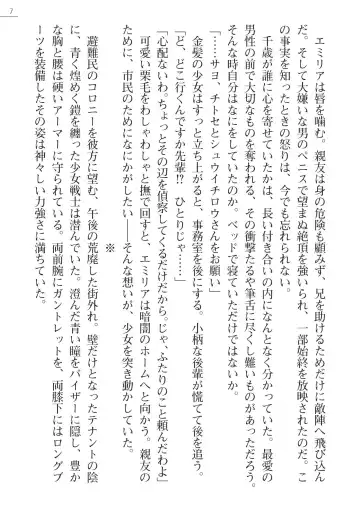 7
エミリアは唇を噛む。親友は身の危険も顧みず、兄を助けるためだけに敵陣へ飛び込ん
だ。そして大嫌いな男のペニスで望まぬ絶頂を強いられ、一部始終を放映されたのだ。こ
の事実を知ったときの怒りは、今でも忘れられない。
千歳が誰に心を寄せていたかは、長い付き合いの内になんとなく分かっていた。最愛の
男性の前で大切なものを奪われる、その衝撃たるや筆舌に尽くし難いものがあっただろう。
そんな時自分はなにをしていたのか。ベッドで寝ていただけではないか。
「……サヨ、チトセとシュウイチロウさんをお願い」
金髪の少女はすっと立ち上がると、事務室を後にする。小柄な後輩が慌てて追う。
「ど、どこ行くんですか先輩!? ひとりじゃ……」
「心配ないわ。ちょっとその辺を偵察してくるだけだから。じゃ、ふたりのこと頼んだわよ」
可愛い栗毛をわしゃわしゃと撫で回すと、エミリアは暗闇のホームへと向かう。親友の
ために、市民のためになにかがしたい――そんな想いが、少女を突き動かしていた。
※
避難民のコロニーを彼方に望む、午後の荒廃した街外れ。壁だけとなったテナントの陰
に、青く煌めく鎧を纏った少女戦士は潜んでいた。澄んだ青い瞳をバイザーに隠し、豊か
な胸と腰は硬いアーマーに守られている。両前腕にガントレットを、両膝下にはロングブ
ーツを装備したその姿は神々しい力強さに満ちていた。